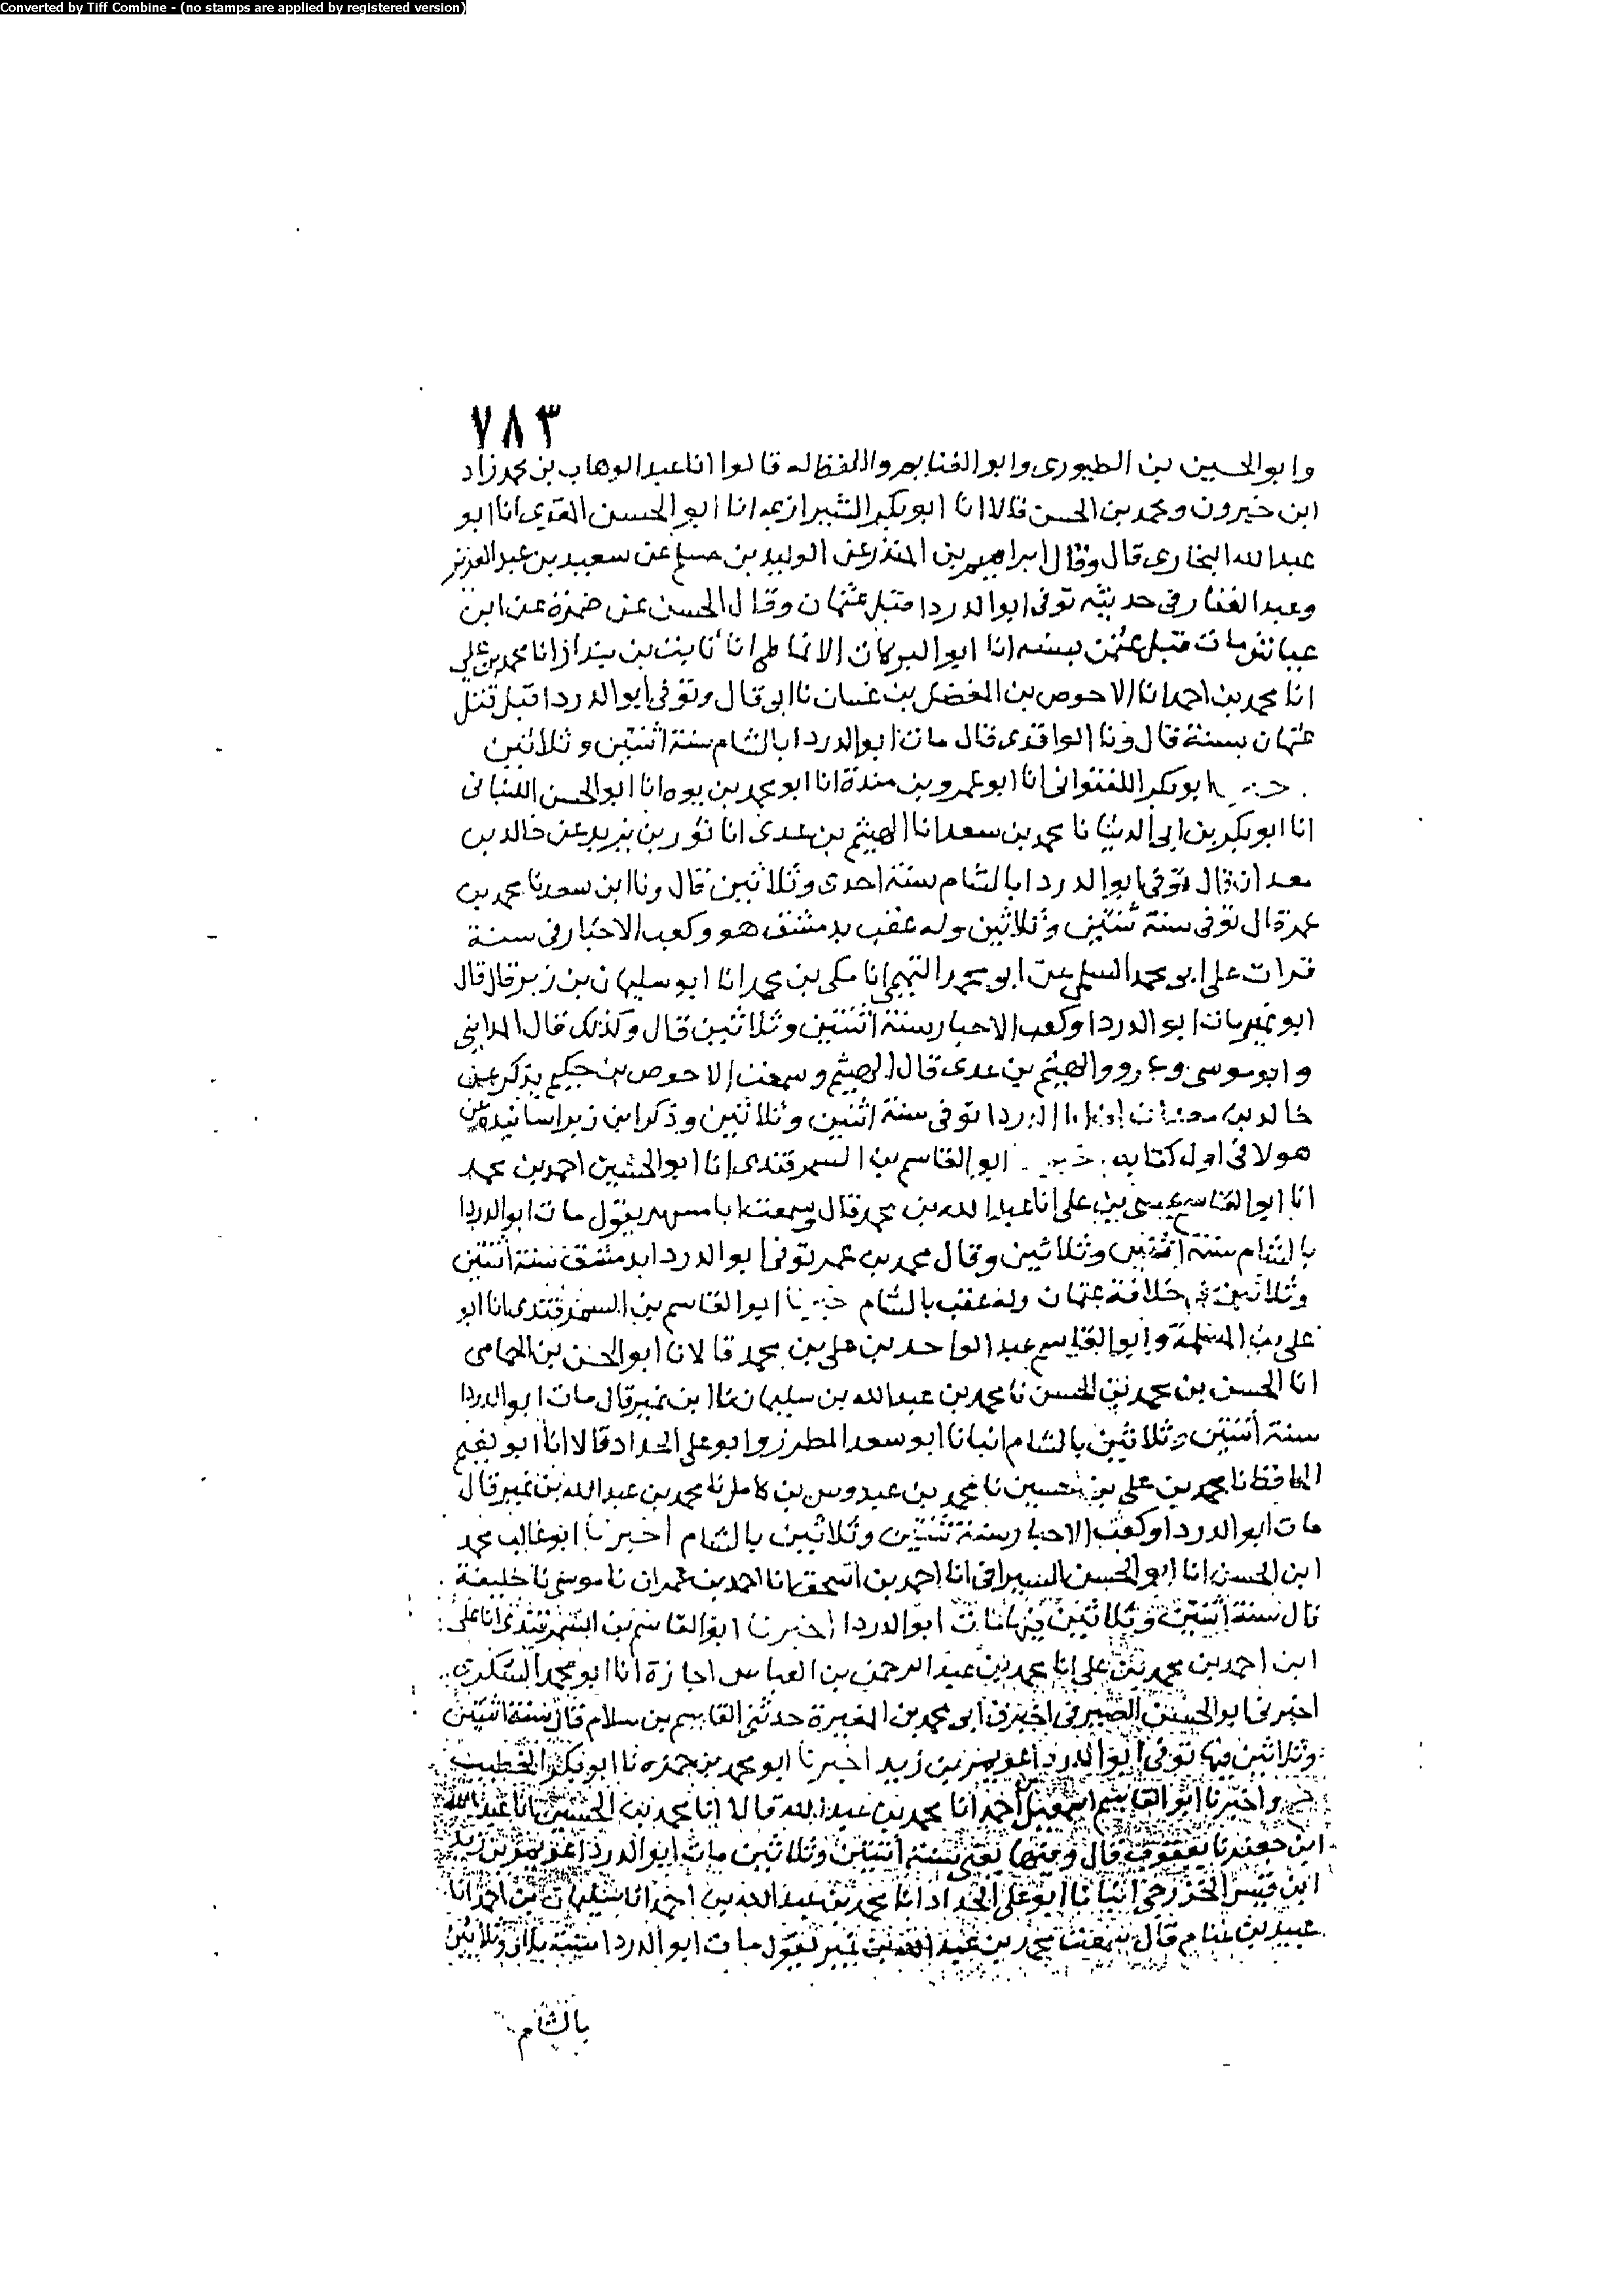 Converted by Tiff Combine - (no stamps are applied by registered version)
٧٨٣
وابو الحسين بن الطيورى وابو الغنايم واللفظ له قالوا انا عبد الوهاب بن محمد زاد
ابن خيرون ومحمد بن الحسن قالا انا ابو بكر الشيرازى انا ابو الحسن المقرى انا ابو
عبد الله البخارى قال وقال ابراهيم بن المنذر عن الوليد بن مسلم عن سعيد بن عبد العزيز
وعبد الغفار فى حديثه توفى ابو الدردا قبل عثمان وقال الحسن عن ضمرة عن ابن
عياش مات قبل عثمن بسنه انا ابو البركات الانماطى انا ثابت بن بندار انا محمد بن على
انا محمد بن احمد انا الاحوص بن المفضل بن غسان نا ابى قال وتوفى ابو الدردا قبل قتل
عثمان بسنة قال ونا الواقدى قال مات ابو الدردا بالشام سنة اثنتين وثلاثين
ابو بكر اللفتوانى انا ابو عمرو بن مندة انا ابو محمد بن يوه انا ابو الحسن اللنبانى
انا ابو بكر بن ابى الدنيا نا محمد بن سعد انا الهيثم بن عدى انا ثور بن يزيد عن خالد بن
معدان قال توفى ابو الدردا بالشام سنة احدى وثلاثين قال ونا ابن سعد نا محمد بن
عمر قال توفى سنة ثنتين وثلاثين وله عقب بدمشق هو وكعب الاحبار فى سنة
قرات على ابو محمد السلمى عن ابو محمد التميمى انا مكى بن محمد انا ابو سليمان بن زبر قال قال
ابو نمير مات ابو الدردا وكعب الاحبار سنة اثنتين وثلاثين قال وكذلك قال المداينى
وابو موسى وعمرو والهيثم بن عدى قال الهيثم وسمعت الاحوص بن حكيم يذكر عن
خالد بن معدان ان ابا الدردا توفى سنة اثنين وثلاثين وذكر ابن زبر اسانيده عن
هولا فى اول كتابه ابو القاسم بن السمرقندى انا ابو الحسين احمد بن محمد
انا ابو القاسم عيسى بن على انا عبد الله بن محمد قال وسمعت ابا مسهر يقول مات ابو الدردا
بالشام سنة اثنتين وثلاثين وقال محمد بن عمر توفى ابو الدردا بدمشق سنة اثنتين
وثلاثين فى خلافة عثمان وله عقب بالشام ابو القاسم بن السمرقندى انا ابو
على بن المسلمة وابو القاسم عبد الواحد بن على بن محمد قالا نا ابو الحسن بن الحمامى
انا الحسن بن محمد بن الحسن نا محمد بن عبد الله بن سليمان نا ابن نمير قال مات ابو الدردا
سنة اثنتين وثلاثين بالشام انبانا ابو سعد المطرز وابو على الحداد قالا انا ابو نعيم
الحافظ نا محمد بن على بن حسين نا محمد بن عبدوس بن كامل نا محمد بن عبد الله بن نمير قال
مات ابو الدردا وكعب الاحبار سنة ثنتين وثلاثين بالشام اخبرنا ابو غالب محمد
ابن الحسن انا ابو الحسن السيرافى انا احمد بن اسحق نا احمد بن عمران نا موسى نا خليفة
قال سنة اثنتين وثلاثين فيها مات ابو الدردا اخبرنا ابو القاسم بن السمرقندى انا على
ابن احمد بن محمد بن على انا محمد بن عبد الرحمن بن العباس اجازة انا ابو محمد السكرى
اخبرنى ابو الحسن الصيرفى اخبرنى ابى محمد بن المغيرة حدثنى القاسم بن سلام قال سنة اثنتين
وثلاثين فيها توفى ابو الدردا عويمر بن زيد اخبرنا ابو محمد بن حمزه نا ابو بكر الخطيب
واخبرنا ابو القاسم اسمعيل احمد انا محمد بن عبد الله قالا انا محمد بن الحسين انا عبد الله
ابن جعفر نا يعقوب قال وفيها يعنى سنة اثنتين وثلاثين مات ابو الدردا عويمر بن زيد
ابن قيس الخزرجى انبانا ابو على الحداد انا محمد بن عبد الله بن احمد انا سليمان بن احمد انا
عبيد بن غنام قال سمعت محمد بن عبد الله بن نمير يقول مات ابو الدردا سنة ثلاث وثلاثين
بالشام